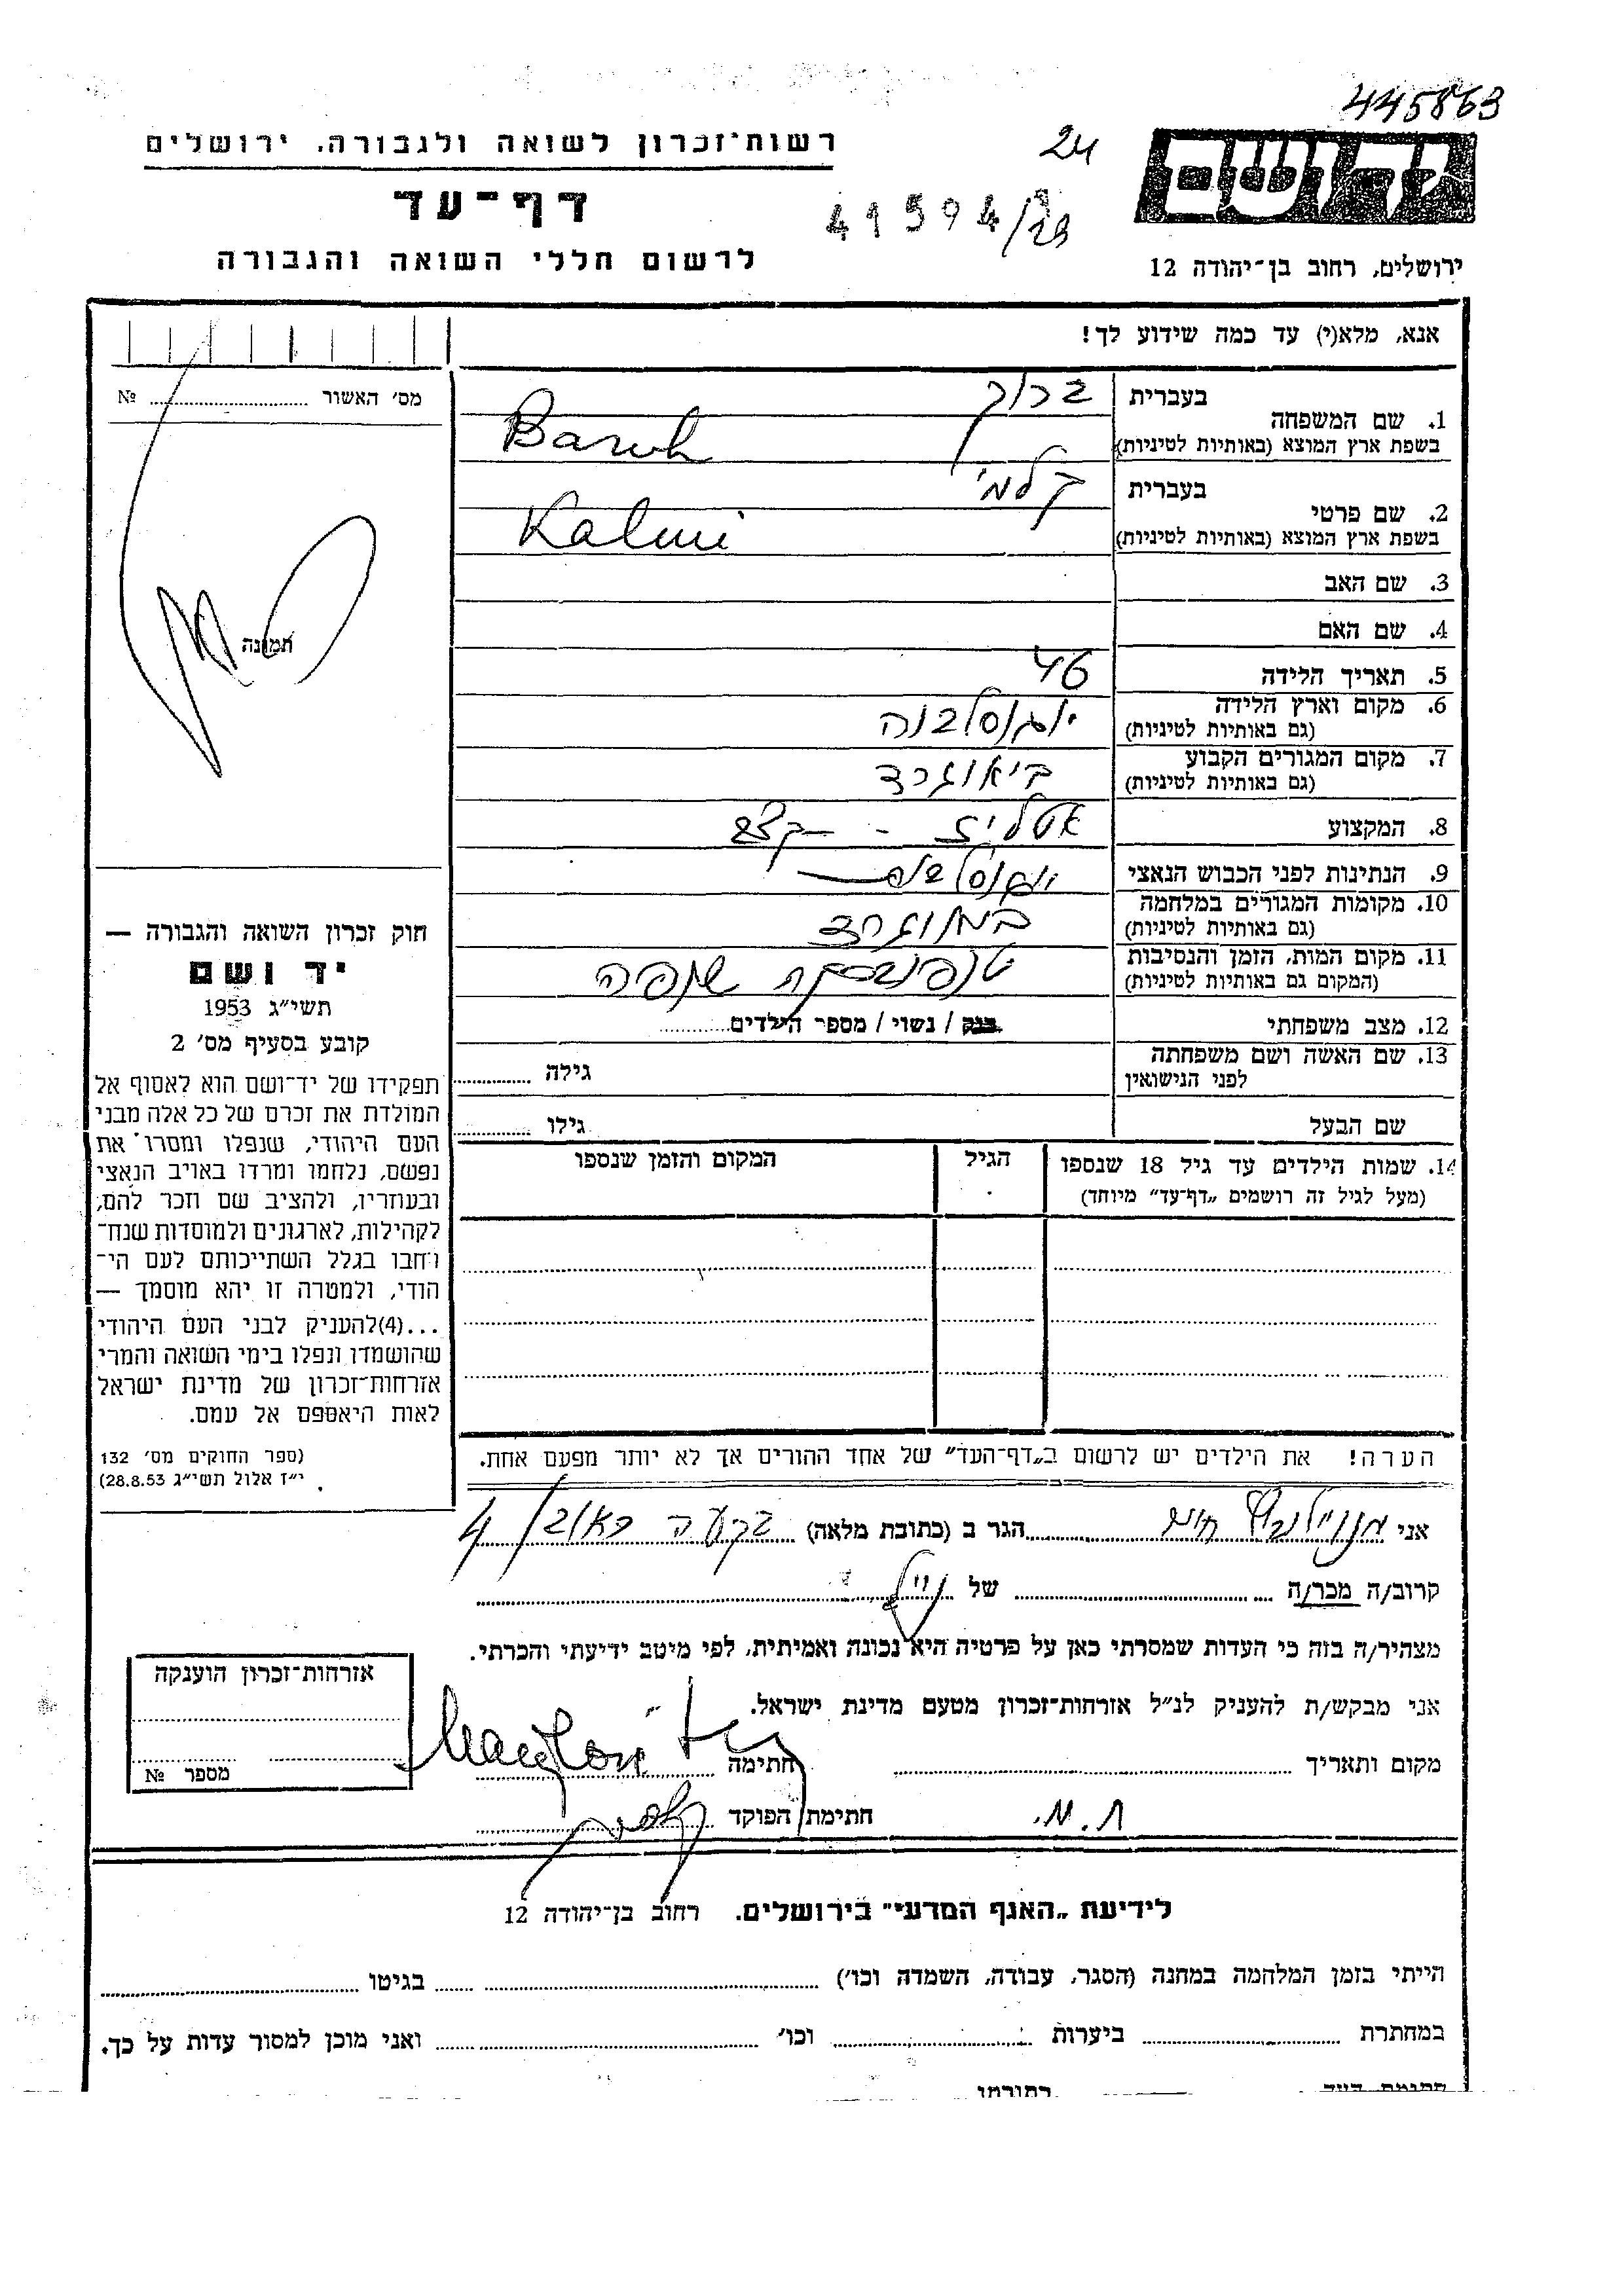 445863
רשות־זכרון לשואה ולגבורה, ירושלים
24
יד ושם
דף־עד
41594/29
לרשום חללי השואה והגבורה
ירושלים, רחוב בן־יהודה 12
אנא, מלא(י) עד כמה שידוע לך!
מס׳ האשור № 
1. שם המשפחה
בעברית ברוך
בשפת ארץ המוצא (באותיות לטיניות) Baruh
2. שם פרטי
בעברית קלמי
בשפת ארץ המוצא (באותיות לטיניות) Kalmi
3. שם האב
4. שם האם
תמונה
5. תאריך הלידה 46
6. מקום וארץ הלידה יוגוסלביה
(גם באותיות לטיניות)
7. מקום המגורים הקבוע ביאוגרד
(גם באותיות לטיניות)
8. המקצוע אטליז - קצב
9. הנתינות לפני הכבוש הנאצי יוגוסלבית
10. מקומות המגורים במלחמה ביאוגרד
(גם באותיות לטיניות)
11. מקום המות, הזמן והנסיבות
(המקום גם באותיות לטיניות)
12. מצב משפחתי רנק / נשוי / מספר הילדים
13. שם האשה ושם משפחתה גילה
לפני הנישואין
שם הבעל גילו
14. שמות הילדים עד גיל 18 שנספו הגיל המקום והזמן שנספו
(מעל לגיל זה רושמים „דף־עד״ מיוחד)
חוק זכרון השואה והגבורה —
יד ושם
תשי״ג 1953
קובע בסעיף מס׳ 2
תפקידו של יד־ושם הוא לאסוף אל
המולדת את זכרם של כל אלה מבני
העם היהודי, שנפלו ומסרו את
נפשם, נלחמו ומרדו באויב הנאצי
ובעוזריו, ולהציב שם וזכר להם,
לקהילות, לארגונים ולמוסדות שנח־
רבו בגלל השתייכותם לעם הי־
הודי, ולמטרה זו יהא מוסמך —
...(4)להעניק לבני העם היהודי
שהושמדו ונפלו בימי השואה והמרי
אזרחות־זכרון של מדינת ישראל
לאות היאספם אל עמם.
(ספר החוקים מס׳ 132
י״ז אלול תשי״ג 28.8.53)
הערה! את הילדים יש לרשום ב„דף־העד״ של אחד ההורים אך לא יותר מפעם אחת.
אני חיים הגר ב (כתובת מלאה) 4/
קרוב/ה מכר/ה של
מצהיר/ה בזה כי העדות שמסרתי כאן על פרטיה היא נכונה ואמיתית, לפי מיטב ידיעתי והכרתי.
אני מבקש/ת להעניק לנ״ל אזרחות־זכרון מטעם מדינת ישראל.
מקום ותאריך חתימה
ת.א. חתימת הפוקד
אזרחות־זכרון הוענקה
מספר №
לידיעת „האגף המדעי״ בירושלים. רחוב בן־יהודה 12
הייתי בזמן המלחמה במחנה (הסגר, עבודה, השמדה וכו׳) בגיטו
במחתרת ביערות וכו׳ ואני מוכן למסור עדות על כך.